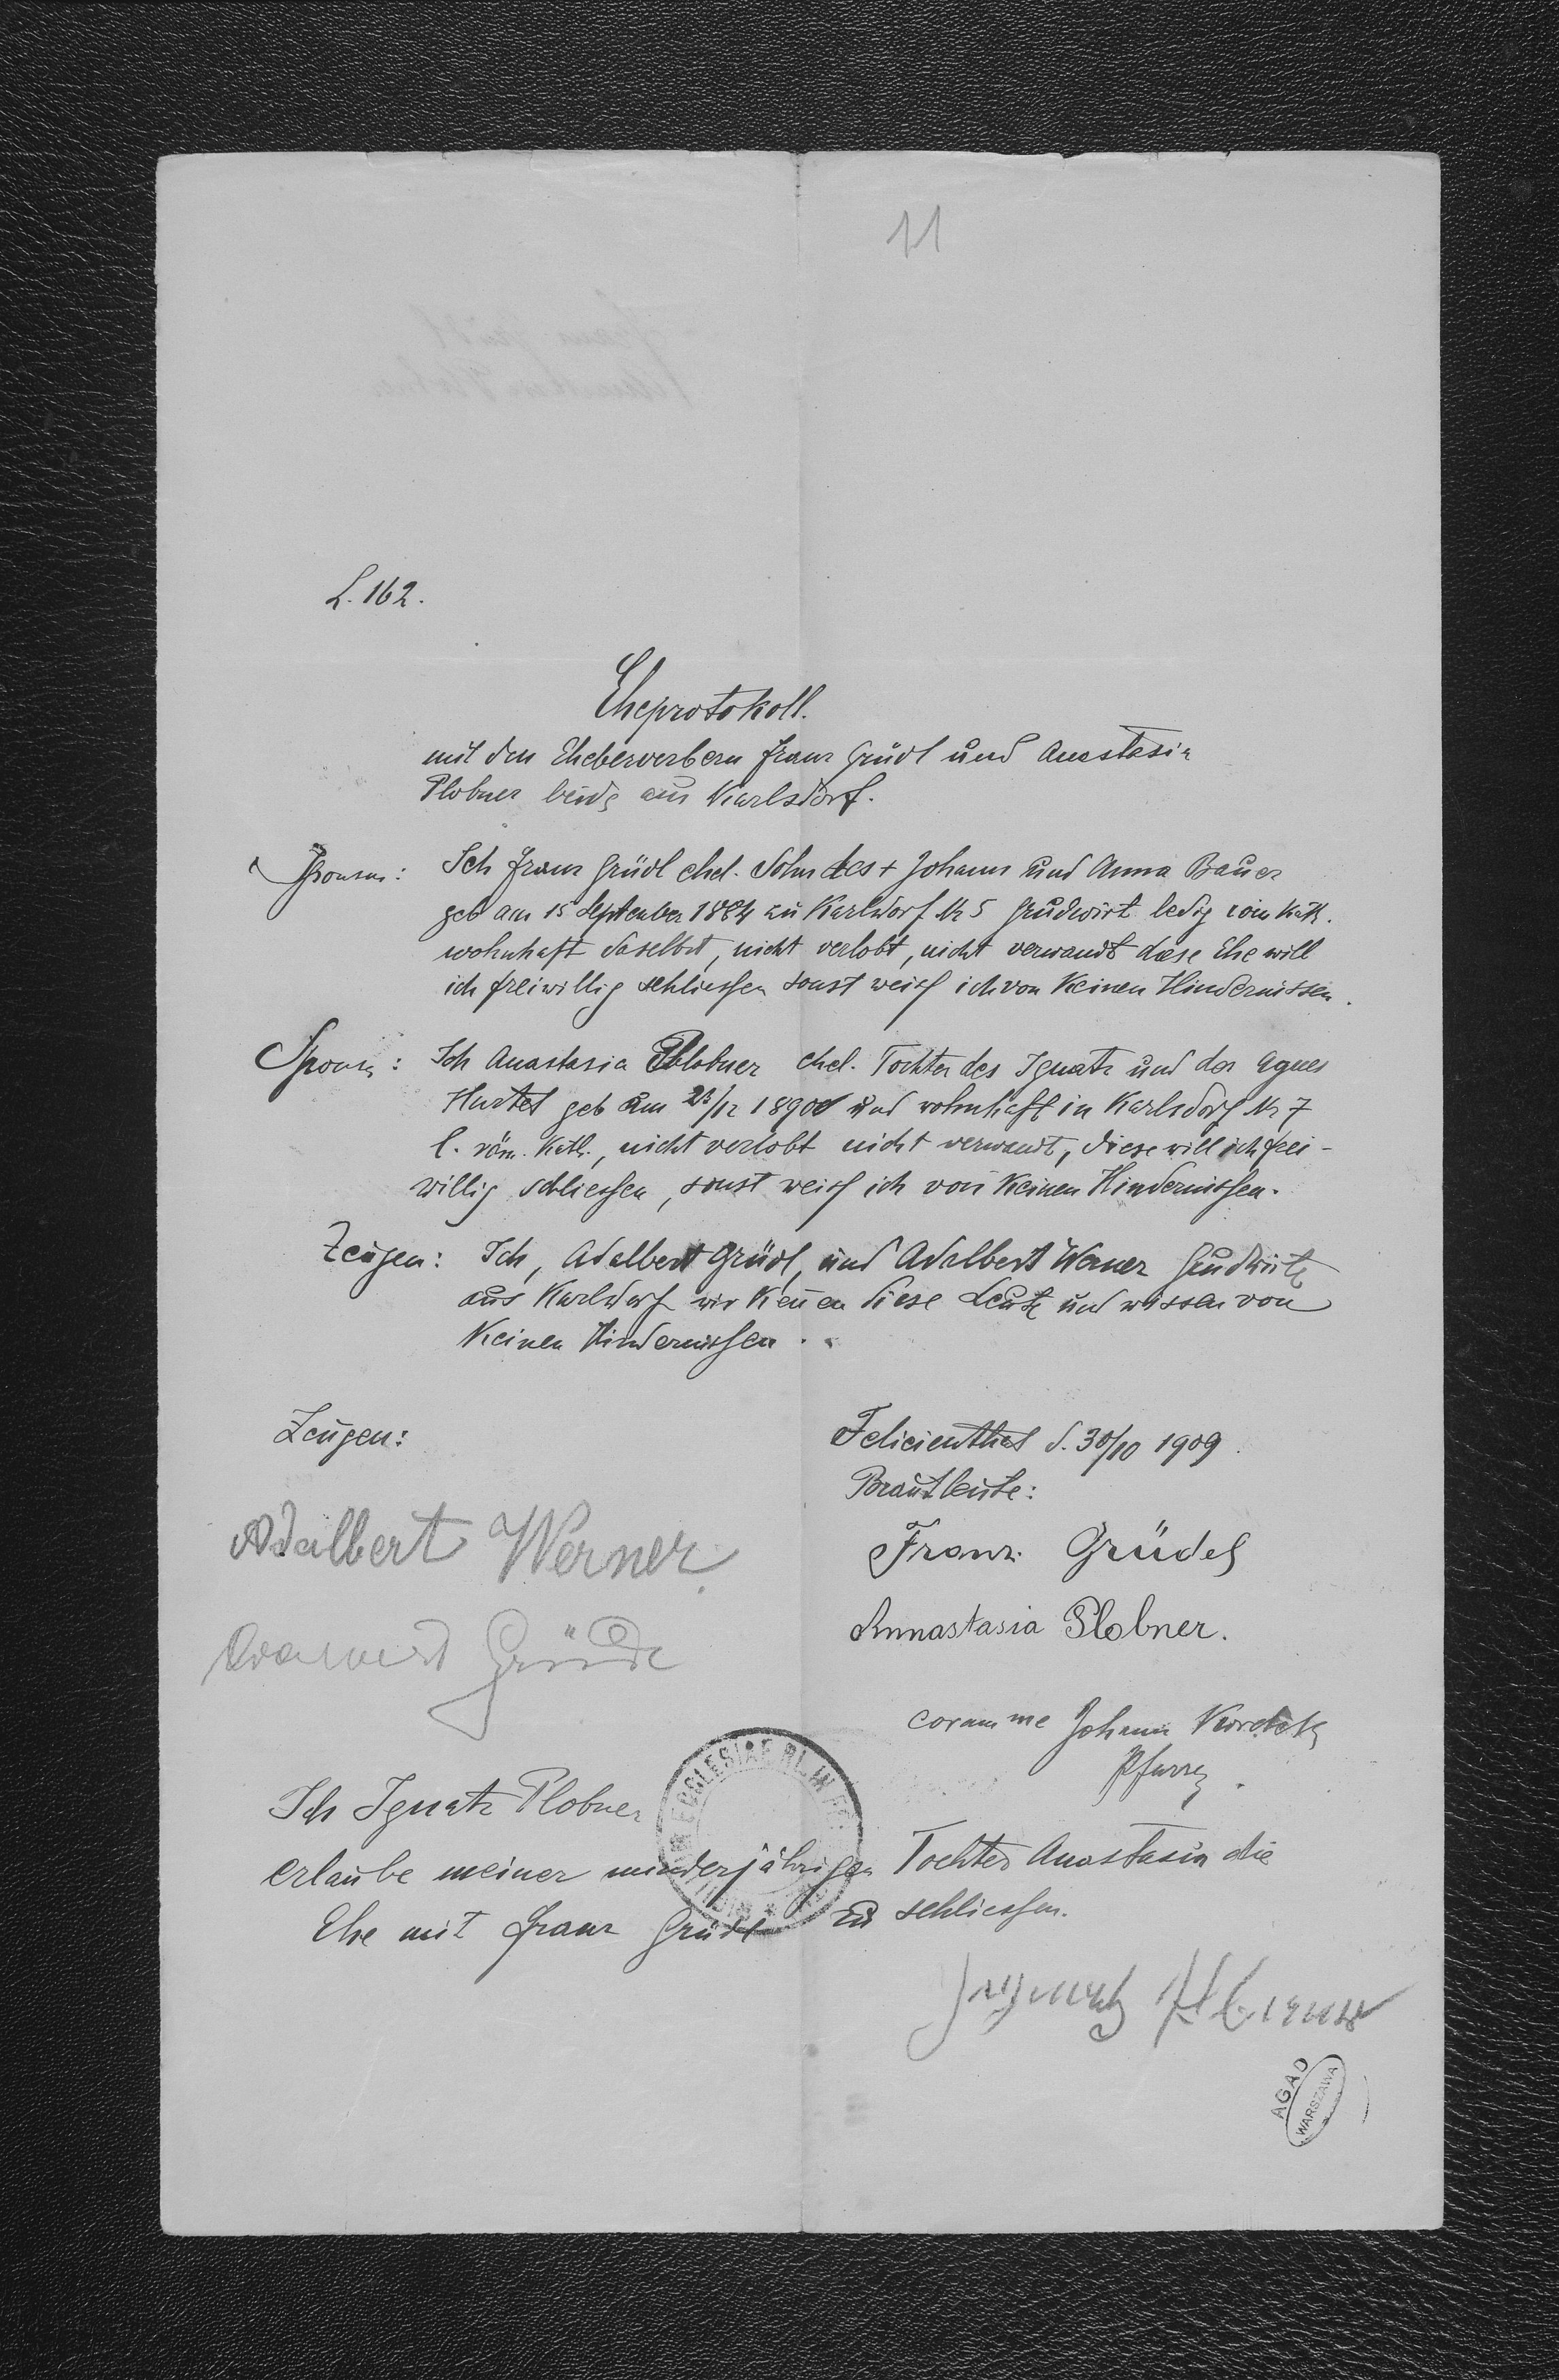 11
L. 162.
Eheprotokoll.
mit den Ehebewerbern Franz Grüdl und Anastasia
Plobner beide aus Karlsdorf.
Sponsus: Ich Franz Grüdl ehel. Sohn des + Johann und Anna Bauer
geb am 15 September 1884 zu Karlsdorf Nr 5 Grudwirt ledig röm kath.
wohnhaft daselbst, nicht verlobt, nicht verwandt diese Ehe will
ich freiwillig schliessen sonst weiss ich von keinen Hindernissen.
Sponsa: Ich Anastasia Plobner ehel. Tochter des Ignatz und der Agnes
geb am /12 1890 und wohnhaft in Karlsdorf Nr 7
l. röm. kath., nicht verlobt nicht verwandt, diese will ich frei-
willig schliessen, sonst weiss ich von keinen Hindernissen.
Zeugen: Ich, Adalbert Grüdl, und Adalbert Werner Grudwirte
aus Karlsdorf wir kenen diese Leute und wissen von
keinen Hindernissen.
Zeugen:
Felicienthal d. 30/10 1909.
Brautleute:
Adalbert Werner.
Franz Grüdl
Annastasia Plobner.
Grüdl
coram me Johann
Pfarrer.
ECCLESIAE R.L. IN
Ich Ignatz Plobner
erlaube meiner minderjährigen Tochter Anastasia die
Ehe mit Franz Grüdl zu schliessen.
AGAD
WARSZAWA